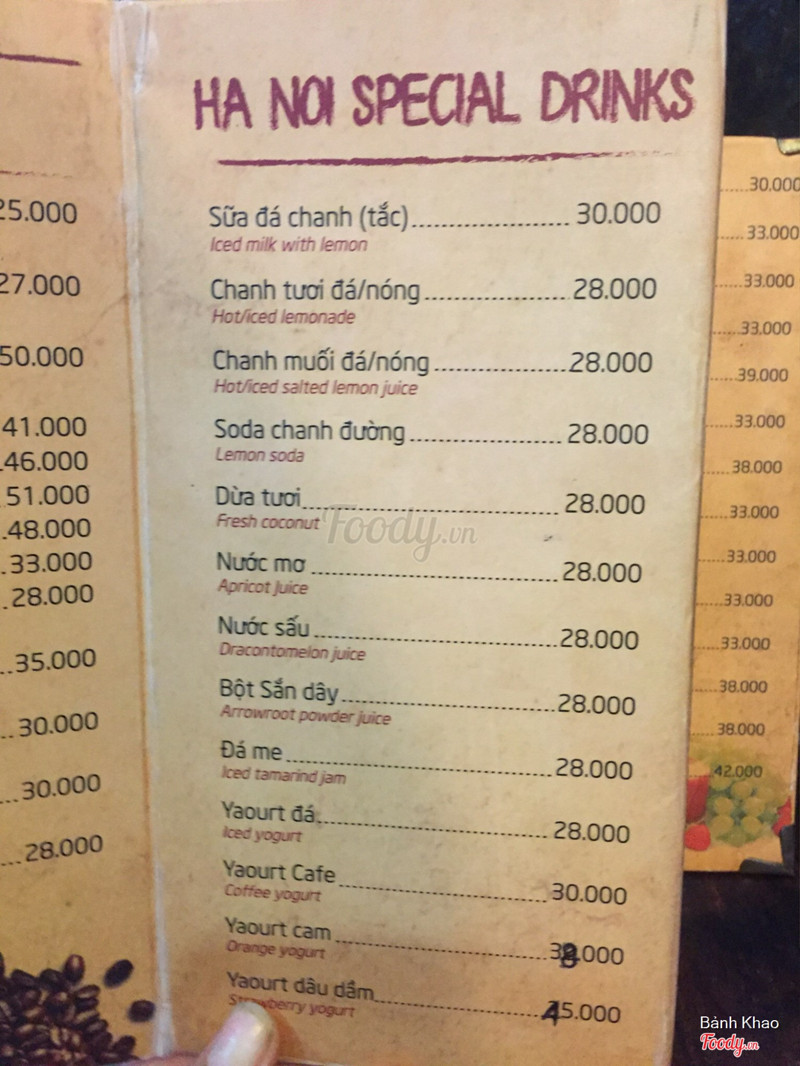 HA NOI SPECIAL DRINKS
25.000
27.000
50.000
41.000
46.000
51.000
48.000
33.000
28.000
35.000
30.000
30.000
28.000
Sữa đá chanh (tắc) 30.000
Iced milk with lemon
Chanh tươi đá/nóng 28.000
Hot/iced lemonade
Chanh muối đá/nóng 28.000
Hot/iced salted lemon juice
Soda chanh đường 28.000
Lemon soda
Dừa tươi 28.000
Fresh coconut
Nước mơ 28.000
Apricot Juice
Nước sấu 28.000
Dracontomelon juice
Bột Sắn dây 28.000
Arrowroot powder juice
Đá me 28.000
Iced tamarind jam
Yaourt đá 28.000
Iced yogurt
Yaourt Cafe 30.000
Coffee yogurt
Yaourt cam 38.000
Orange yogurt
Yaourt dâu dầm 45.000
Strawberry yogurt
30.000
33.000
33.000
33.000
39.000
33.000
38.000
33.000
33.000
33.000
33.000
38.000
38.000
42.000
Foody.vn
Bảnh Khao
Foody.vn